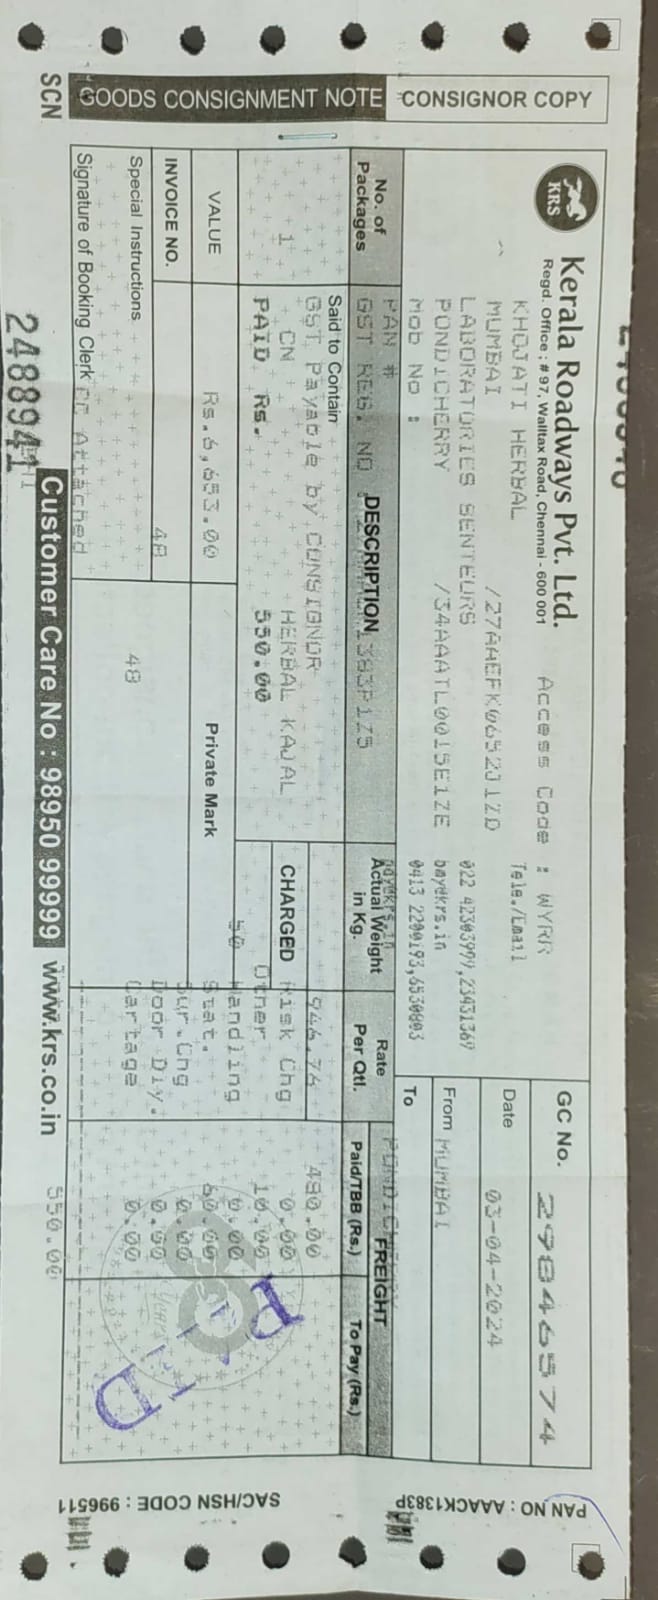 SCN GOODS CONSIGNMENT NOTE CONSIGNOR COPY
KRS
Kerala Roadways Pvt. Ltd.
Regd. Office : # 97, Walltax Road, Chennai - 600 001
Access Code : WYRR
GC No. 298465574
KHOJATI HERBAL Tele./Email
Date 03-04-2024
MUMBAI /27AAEFK0652J1ZD
LABORATORIES SENTEURS 022 42303999,23431369
From MUMBAI
PONDICHERRY /34AAATL0015E1ZE bay@krs.in
Mob No : 0413 2200193,6530803
To
PAN #
GST REG. NO
No. of Packages
DESCRIPTION
Actual Weight in Kg.
Rate Per Qtl.
FREIGHT
Paid/TBB (Rs.)
To Pay (Rs.)
Said to Contain
GST Payable by CONSIGNOR 946.76 480.00
1 CN HERBAL KAJAL CHARGED Risk Chg 0.00
PAID Rs. 550.00 Other 10.00
50 Handling 0.00
VALUE Rs.6,653.00 Private Mark Stat. 60.00
Sur.Chg 0.00
INVOICE NO. 48 Door Dly. 0.00
Special Instructions 48 Cartage 0.00
Signature of Booking Clerk CC Attached
550.00
PAID
2488941
Customer Care No : 98950 99999 www.krs.co.in
PAN NO : AAACK1383P
SAC/HSN CODE : 996511